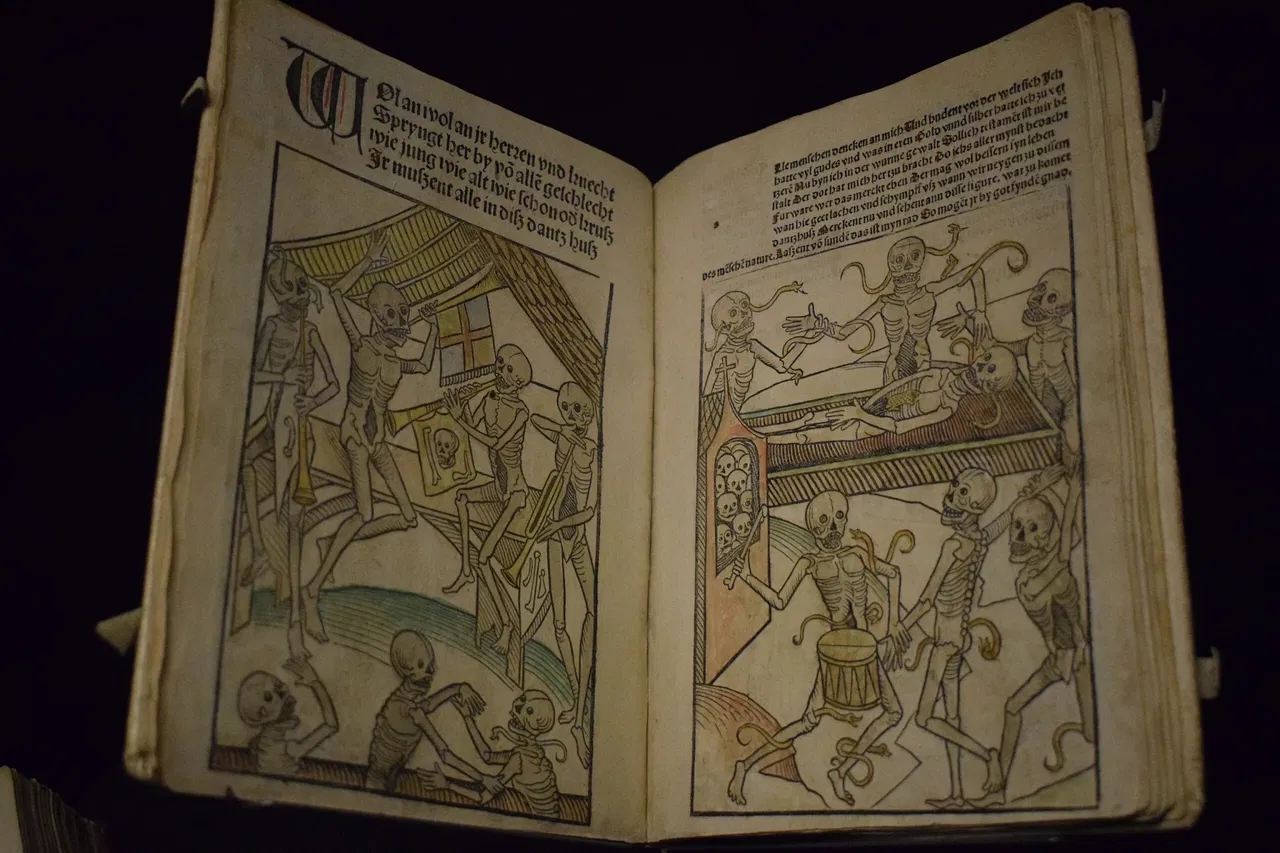 WOl an wol an jr herren vnd knecht
Spryngt her by võ allẽ geschlecht
wie jung wie alt wie schon od̃ kruſz
Jr muſzent alle in diſz dantz huſz
lle menſchen dencken an mich Vnd vor der welt ſich Ich
hatte vyl gudes vnd was in eren Gold vnnd ſilber hatte ich zu
Nu byn ich in der wurme gewalt Sollich teſtamẽt iſt mir be
ſtalt Der dot hat mich her zu bracht Do ichs aller mynſt bedacht
Furware wer das mercks eben Der mag wol beſſern ſyn leben
wan hie geet lachen vnd ſchympff vſz wann wir neygen zu diſſem
dantzhuſz Merckent nu vnd ſehent ann diſſe figure. war zu komet
des mẽſchẽ nature. Laſzent võ ſundẽ das iſt myn rad So mogẽt jr by got fyndẽ gnad.